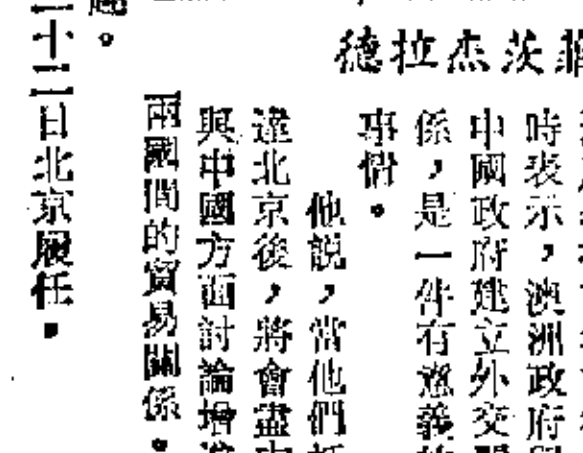 德拉杰茨菲
時表示，澳洲政府與
中國政府建立外交關
係，是一件有意義的
事情。
他說，當他們抵
達北京後，將會盡
與中國方面討論增進
兩國間的貿易關係。
二十二日北京履任。